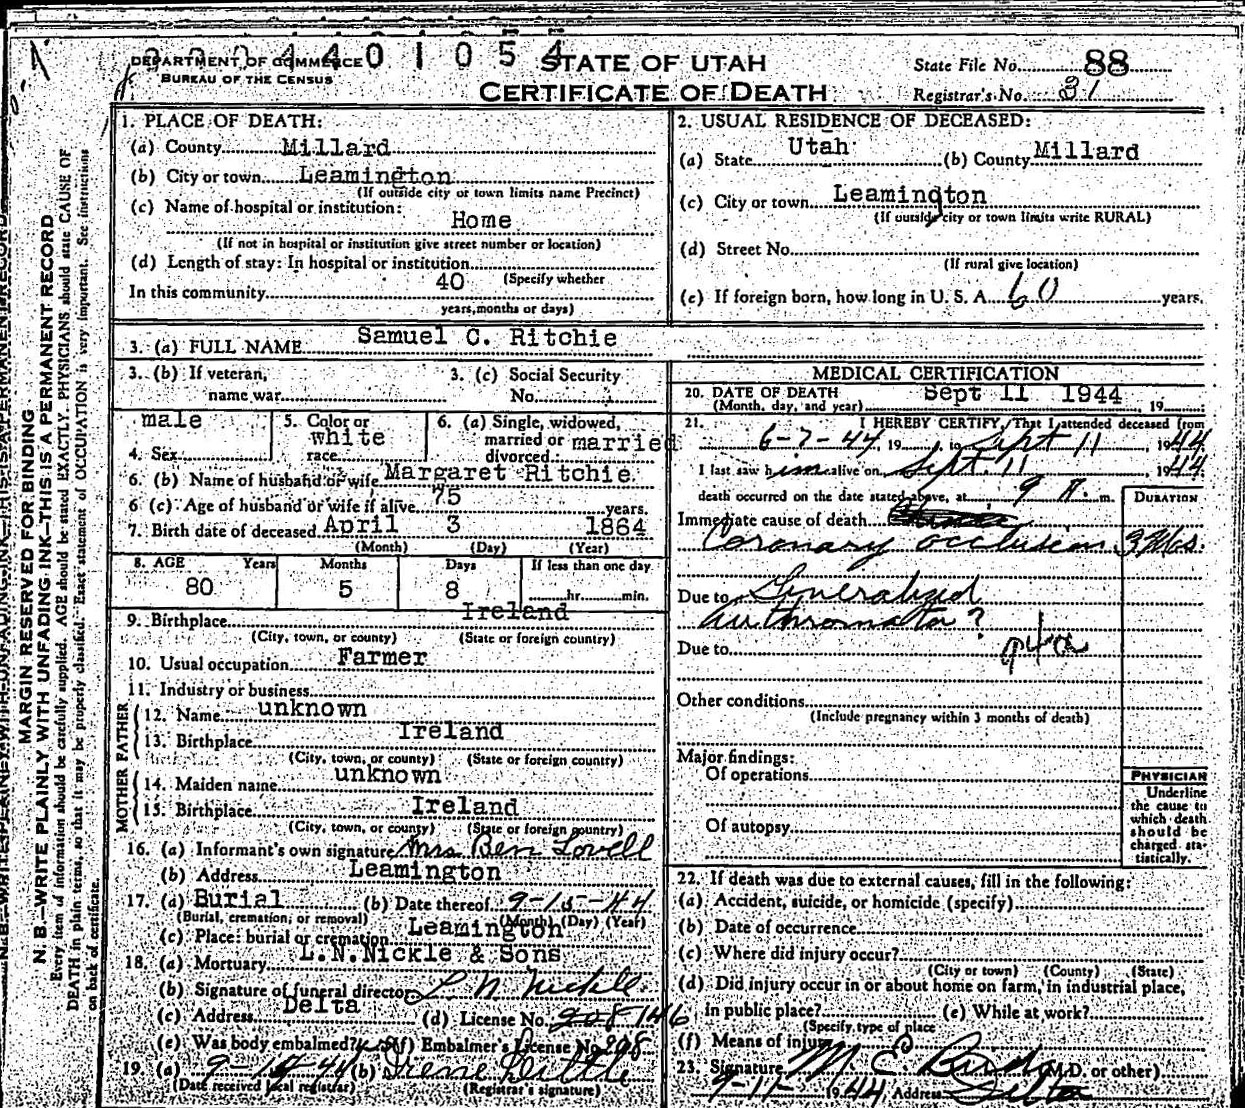 DEPARTMENT OF COMMERCE
BUREAU OF THE CENSUS
401054
STATE OF UTAH
CERTIFICATE OF DEATH
State File No. 88
Registrar's No. 31
MARGIN RESERVED FOR BINDING
N. B.—WRITE PLAINLY WITH UNFADING INK—THIS IS A PERMANENT RECORD
Every item of information should be carefully supplied. AGE should be stated EXACTLY. PHYSICIANS should state CAUSE OF
DEATH in plain terms, so that it may be properly classified. Exact statement of OCCUPATION is very important. See instructions
on back of certificate.
1. PLACE OF DEATH:
(a) County Millard
(b) City or town Leamington
(If outside city or town limits name Precinct)
(c) Name of hospital or institution:
Home
(If not in hospital or institution give street number or location)
(d) Length of stay: In hospital or institution
(Specify whether
In this community 40
years, months or days)
2. USUAL RESIDENCE OF DECEASED:
(a) State Utah (b) County Millard
(c) City or town Leamington
(If outside city or town limits write RURAL)
(d) Street No.
(If rural give location)
(e) If foreign born, how long in U. S. A. 60 years.
3. (a) FULL NAME Samuel C. Ritchie
3. (b) If veteran,
name war
3. (c) Social Security
No.
4. Sex male
5. Color or
race white
6. (a) Single, widowed,
married or married
divorced:
6. (b) Name of husband or wife Margaret Ritchie
6 (c) Age of husband or wife if alive 75 years.
7. Birth date of deceased April 3 1864
(Month) (Day) (Year)
8. AGE Years Months Days If less than one day
80 5 8 hr. min.
9. Birthplace Ireland
(City, town, or county) (State or foreign country)
10. Usual occupation Farmer
11. Industry or business
FATHER
12. Name unknown
13. Birthplace Ireland
(City, town, or county) (State or foreign country)
MOTHER
14. Maiden name unknown
15. Birthplace Ireland
(City, town, or county) (State or foreign country)
16. (a) Informant's own signature Mrs Ben Lovell
(b) Address Leamington
17. (a) Burial (b) Date thereof 9-15-44
(Burial, cremation, or removal) (Month) (Day) (Year)
(c) Place: burial or cremation Leamington
18. (a) Mortuary L.N.Nickle & Sons
(b) Signature of funeral director L N Nickle
(c) Address Delta (d) License No. 146
(e) Was body embalmed? yes (f) Embalmer's License No. 208
19. (a) (b) Irene
(Date received local registrar) (Registrar's signature)
MEDICAL CERTIFICATION
20. DATE OF DEATH Sept 11 1944, 19
(Month, day, and year)
21. I HEREBY CERTIFY, That I attended deceased from
6-7-44, 19 , to Sept 11, 1944
I last saw him alive on Sept. 11 1944
death occurred on the date stated above, at 9 m.
DURATION
Immediate cause of death
Coronary occlusion 3 Mos.
Due to Generalized
?
Due to
Other conditions
(Include pregnancy within 3 months of death)
Major findings:
Of operations
Of autopsy
PHYSICIAN
Underline
the cause to
which death
should be
charged sta-
tistically.
22. If death was due to external causes, fill in the following:
(a) Accident, suicide, or homicide (specify)
(b) Date of occurrence
(c) Where did injury occur?
(City or town) (County) (State)
(d) Did injury occur in or about home on farm, in industrial place,
in public place? (e) While at work?
(Specify type of place
(f) Means of injury
23. Signature M. E. Bird (M.D. or other)
9-11- 1944 Address Delta